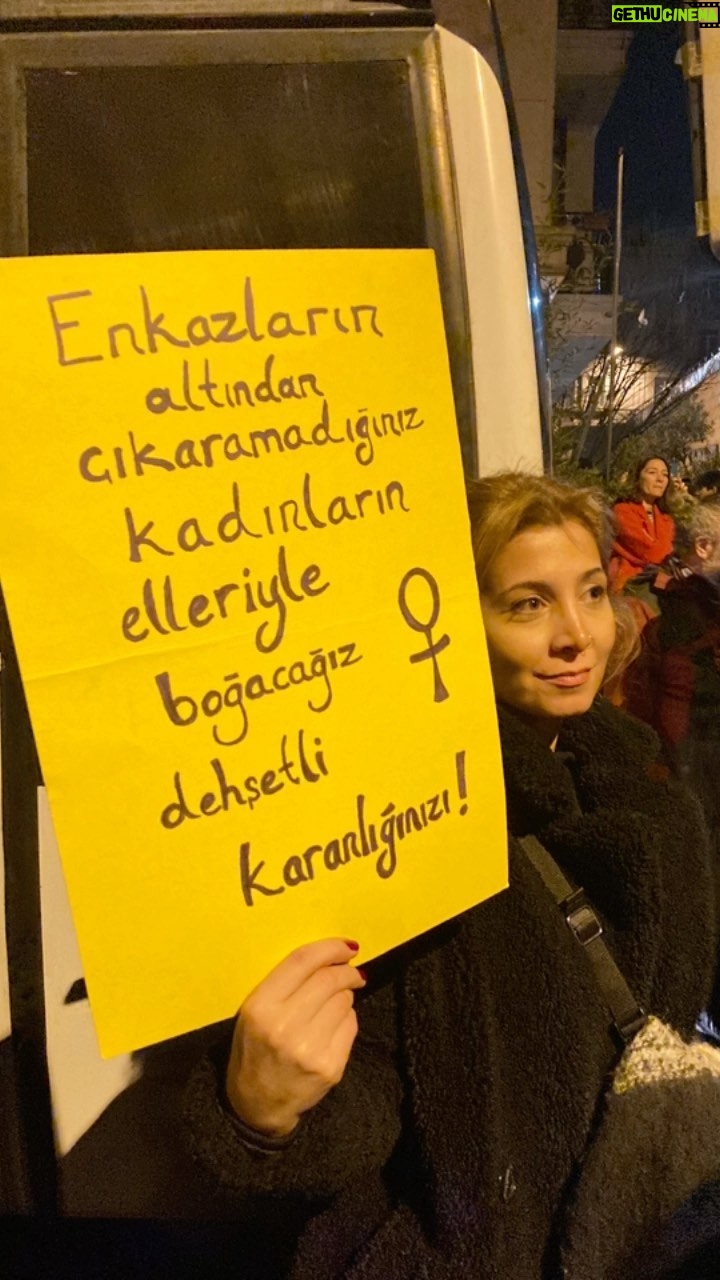 GETHUCINEMA
Enkazların
altından
çıkaramadığınız
kadınların
elleriyle
boğacağız
dehşetli
karanlığınızı!